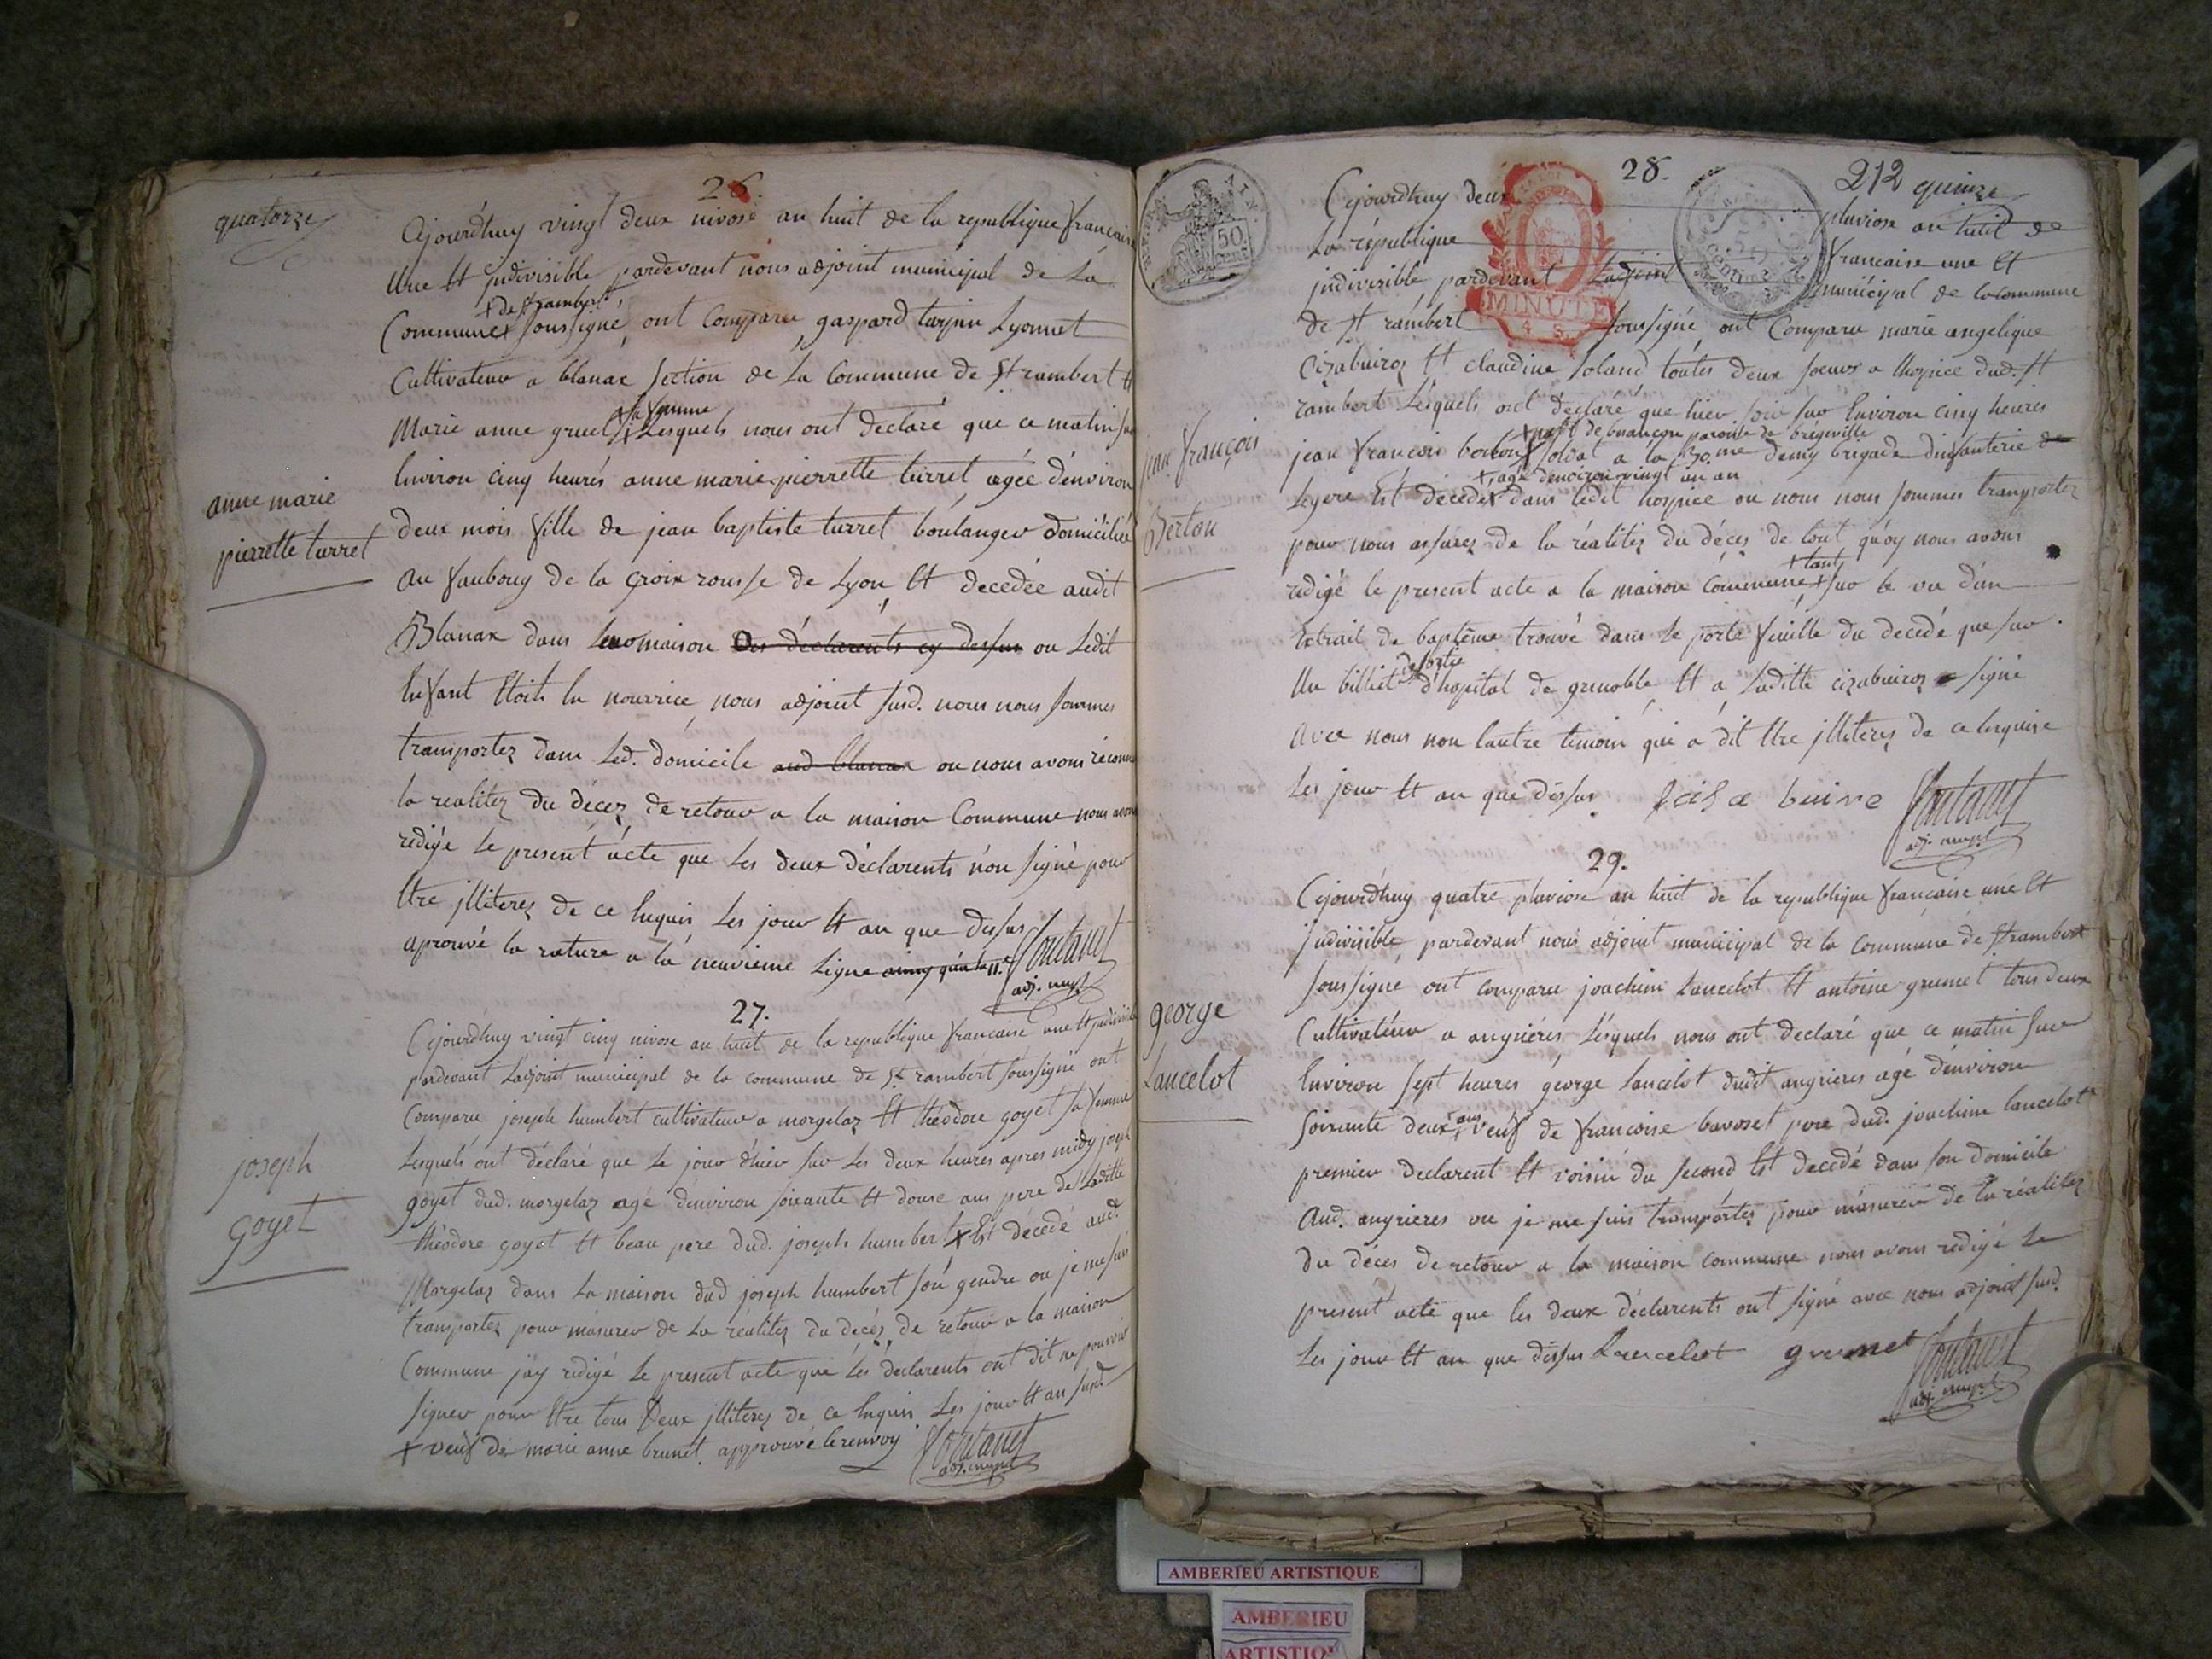 quatorze
26.
Cejourdhuy vingt deux nivose an huit de la republique francaise
Une Et jndivisible pardevant nous adjoint municipal de La
+ de st rambert
Commune+ soussigné, ont Comparu gaspard turpin Lyonnet
Cultivateur a blanax section de La Commune de St rambert Et
sa femme
Marie anne gruel + Lesquels nous ont déclaré que ce matin sur
Environ cinq heurés anne marie pierrette turret agée d'environ
anne marie
pierrette turret
deux mois fille de jean baptiste turret boulanger domiciliée
au faubourg de la Croix rousse de Lyon Et decedée audit
Blanax dans Leur maison Des déclarents cy dessus ou Ledit
Enfant Etoit En nourrice, nous adjoint susd. nous nous sommes
transportez dans Led. domicile aud blanax ou nous avons réconnu
la realitez du décez de retour a la maison Commune nous avons
redigé Le présent acte que Les deux déclarents n'on signé pour
Etre jlliterez de ce Enquis Les jour Et an que dessus
aprouvé la rature a la neuvieme Ligne
adj. mupl
27.
Cejourdhuy vingt cinq nivose an huit de la republique francaise une Et jndivisible
pardevant Ladjoint municipal de la commune de St rambert soussigné ont
Comparu joseph humbert cultivateur a morgelaz Et théodore goyet sa femme
Lesquels ont déclaré que Le jour dhier sur Les deux heures apres midy joseph
joseph
goyet
goyet dud. morgelaz agé denviron soixante Et douze ans pere de Laditte
théodore goyet Et beau pere dud. joseph humbert + Est décédé aud.
Morgelaz dans La maison dud joseph humbert son gendre ou je me suis
transportez pour m'asurer de La réalitez du décés de retour a la maison
Commune jay redigé Le present acte que Les declarents ont dit ne pouvoir
signer pour Etre tous Deux jlliterez de ce Enquis Les jour Et an susd
+ veuf de marie anne brunet approuvé le renvoy
adj. mupl
28.
212 quinze
Cejourdhuy deux pluviose an huit de
La république francaise une Et
MINUTE
4 S.
50
jndivisible pardevant Ladjoint municipal de la commune
de st rambert soussigné ont Comparu marie angelique
Cizabuiroz Et claudine soland toutes deux soeurs a Lhospice dud. St
rambert Lesquels ont declaré que hier soir sur Environ cinq heures
jean françois
Berton
jean francois berton + soldat a la 30.me demy brigade dinfanterie de
+ agé denviron vingt un an
Legere Est décédé + dans Ledit hospice ou nous nous sommes transportez
pour nous assurez de la réalitez du décez de tout quoy nous avons
+ tant
redigé le present acte a la maison commune + sur le vu d'un
Extrait de baptême trouvé dans Le porte feuille du decedé que sur
de sortie
Un billiet d'hopital de grenoble Et a Laditte cizabuiroz signé
avec nous non Lautre temoin qui a dit Etre jlliterez de ce Enquise
Les jour Et an que dessus
adj. mupl
29.
Cejourdhuy quatre pluviose an huit de la republique francaise une Et
jndivisible pardevant nous adjoint municipal de la commune de St rambert
soussigné ont comparu joachim Lancelot Et antoine grumet tous deux
george
Lancelot
Cultivateur a angrieres Lesquels nous ont declaré que ce matin sur
Environ sept heures george Lancelot dudit angrieres agé denviron
ans
soixante deux + veuf de francoise bavoset pere dud. joachim Lancelot
premier declarent Et voisin du second Est decedé dans son domicile
Aud. angrieres ou je me suis transportez pour m'asurer de La réalitez
du déces de retour a la maison commune nous avons redigé Le
present acte que les deux déclarents ont signé avec nous adjoint susd.
Les jour Et an que dessus Lancelot grumet
adj. mupl
AMBERIEU ARTISTIQUE
AMBERIEU
ARTISTIQU